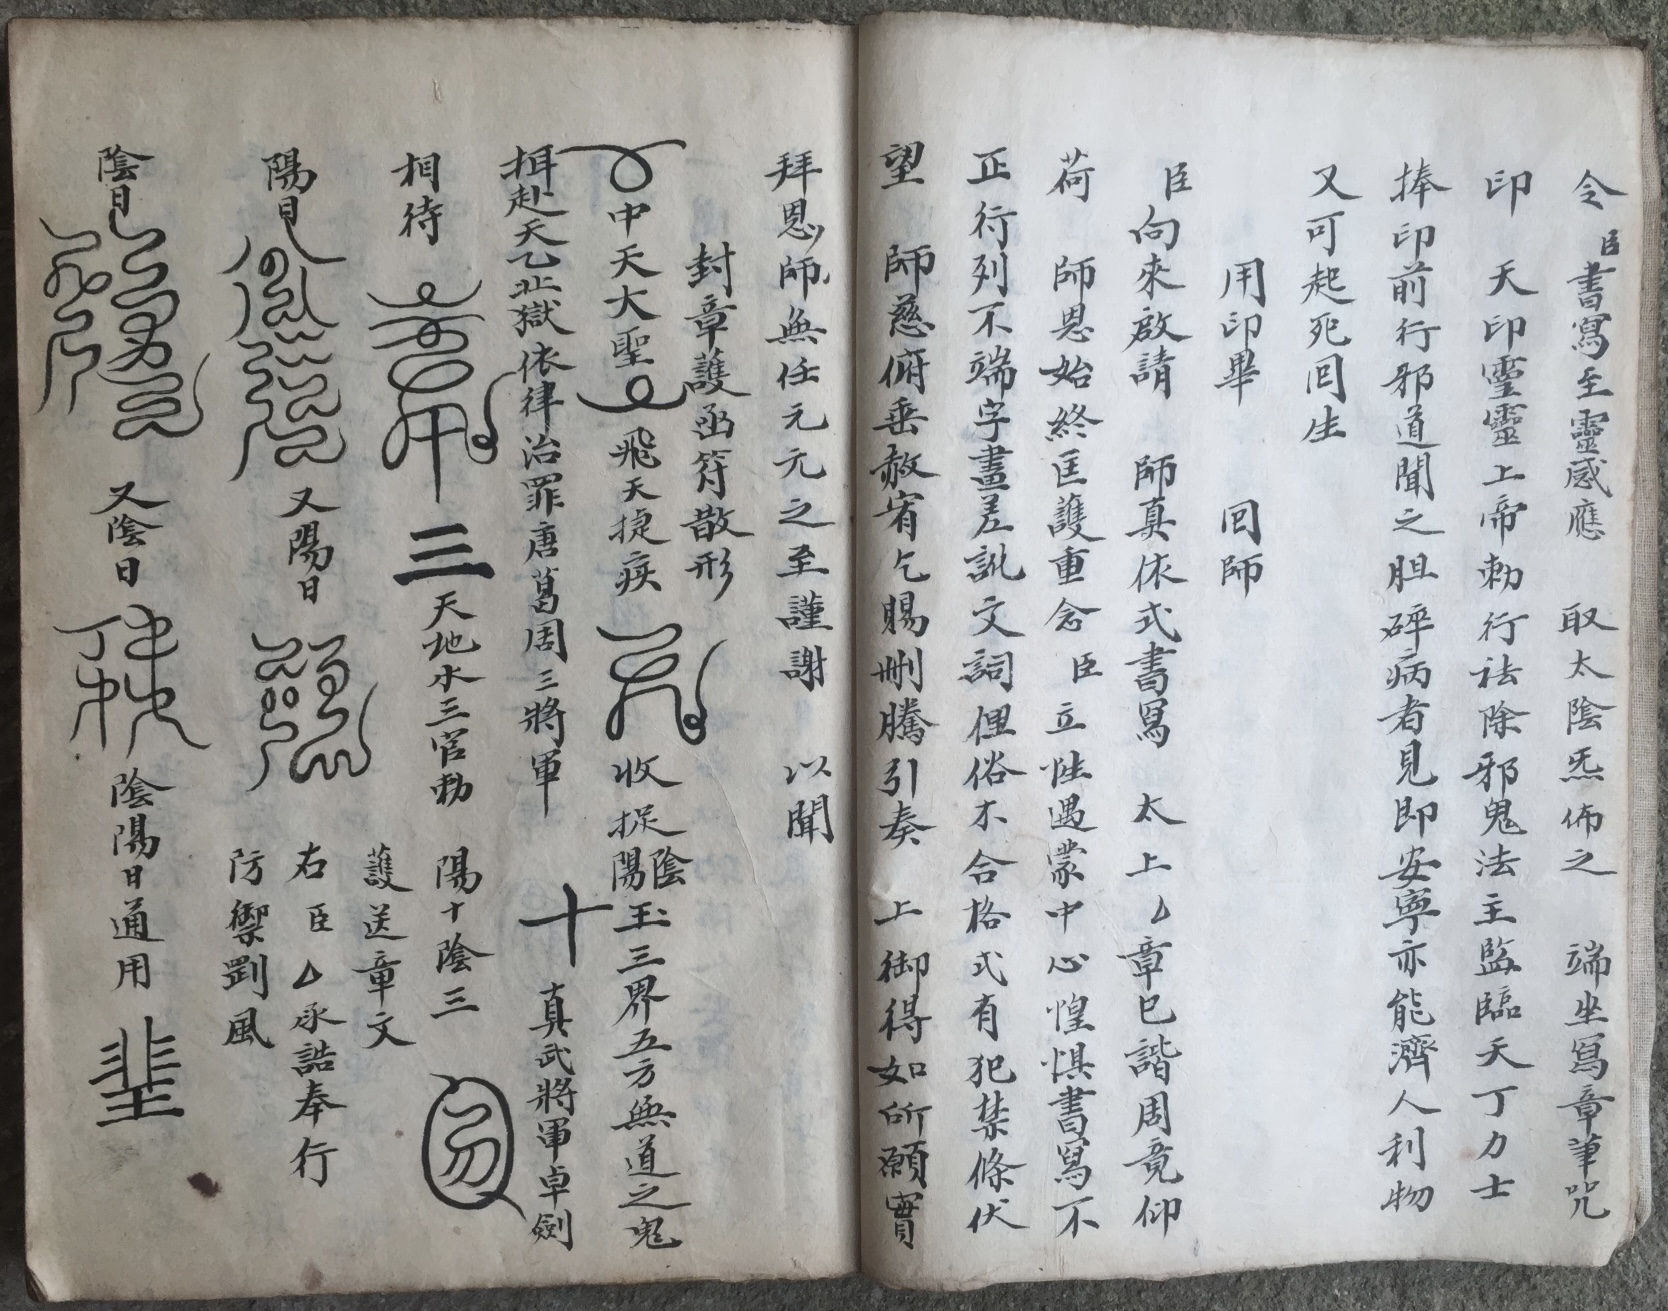 令臣書寫至靈感應　取太陰炁佈之　端坐寫章筆咒
印　天印靈靈上帝勅行法除邪鬼法主監臨天丁力士
捧印前行邪道聞之胆碎病者見即安寧亦能濟人利物
又可起死回生
用印畢　回師
臣向來啟請　師真依式書寫　太上厶章已諧周竟仰
荷　師恩始終匡護重念臣立性遇蒙中心惶惧書寫不
正行列不端字畫差訛文詞俚俗不合格式有犯禁條伏
望　師慈俯垂赦宥乞賜刪騰引奏　上御得如所願實
拜恩師無任元元元之至謹謝　以聞
封章護函符散形
中天大聖　飛天捷疾　收捉陰陽玉三界五方無道之鬼
赴天乙北獄依律治罪唐葛周三將軍　十　真武將軍卓劍
相待　三　天地水三官勅　陽十陰三
護送章文
右臣厶承誥奉行
防禦劉風
陽日　又陽日
陰日　又陰日　陰陽日通用